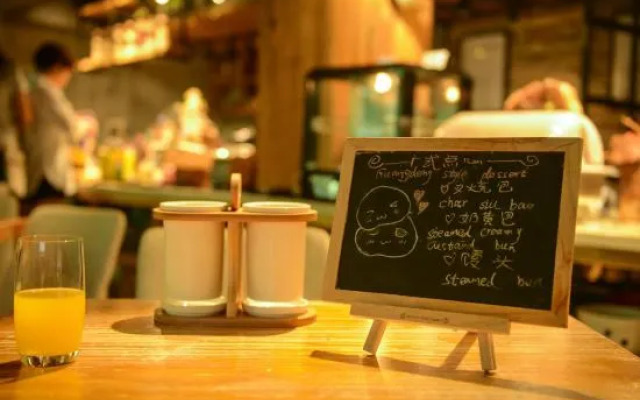 广式点
Guangdong style dessert
叉烧包
char siu bao
♡奶黄包
steamed creamy
custard bun
♡馒头
steamed bun